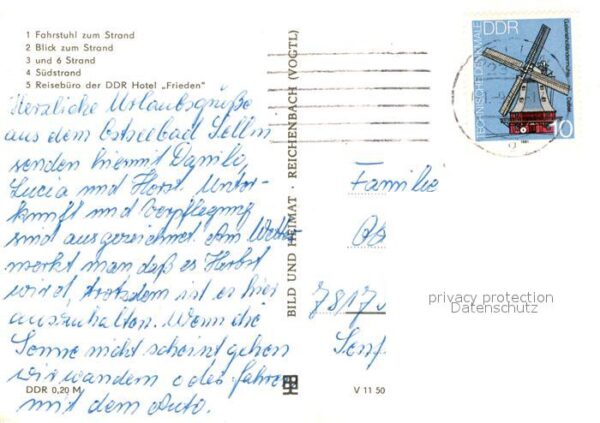 1 Fahrstuhl zum Strand
2 Blick zum Strand
3 und 6 Strand
4 Südstrand
5 Reisebüro der DDR Hotel „Frieden"
Herzliche Urlaubsgrüße
aus dem Ostseebad Sellin
senden hiermit Danilo,
Lucia und Horst. Unter-
kunft und Verpflegung
sind ausgezeichnet. Am Wetter
merkt man daß es Herbst
wird, trotzdem ist es hier
auszuhalten. Wenn die
Sonne nicht scheint gehen
wir wandern oder fahren
mit dem Auto.
DDR 0,20 M
BILD UND HEIMAT · REICHENBACH (VOGTL)
V 11 50
TECHNISCHE DENKMALE
DDR
10
1981
Familie
7817
Senf
privacy protection
Datenschutz